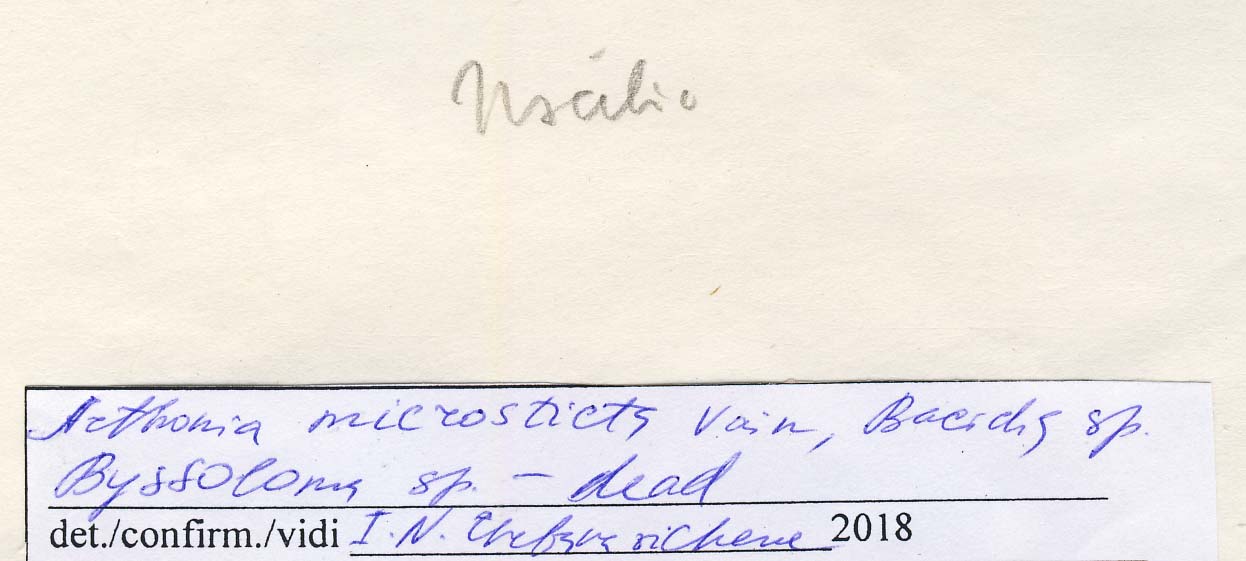 Arthonia microsticta Vain, Bacidia sp.
Byssoloma sp. – dead
det./confirm./vidi I. N. 2018